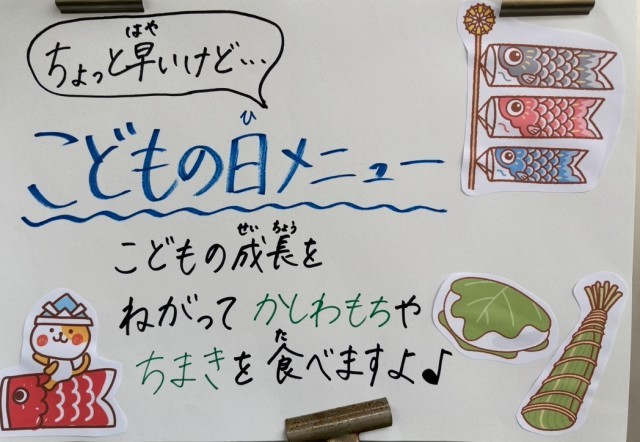 ちょっと早いけど…
こどもの日メニュー
こどもの成長を
ねがって かしわもちや
ちまきを食べますよ♪
はや
ひ
せい ちょう
た